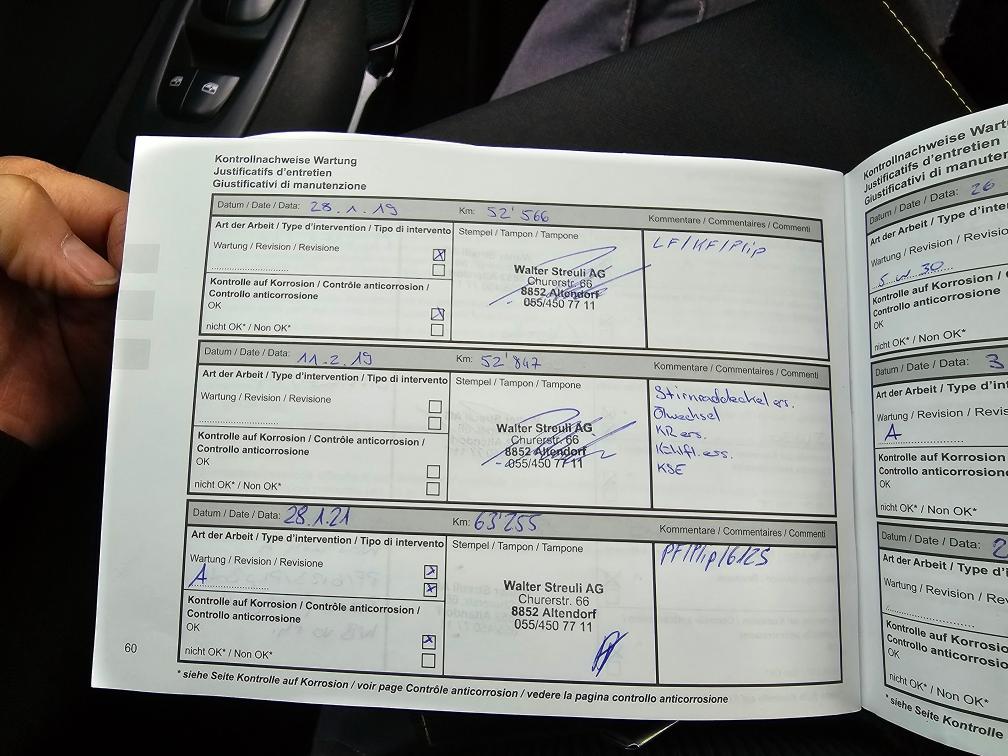 Kontrollnachweise Wartung
Justificatifs d'entretien
Giustificativi di manutenzione
Datum / Date / Data: 28.1.19 Km: 52'566 Kommentare / Commentaires / Commenti
Art der Arbeit / Type d'intervention / Tipo di intervento
Stempel / Tampon / Tampone
LF/KF/Plip
Wartung / Revision / Revisione
Walter Streuli AG
Churerstr. 66
8852 Altendorf
055/450 77 11
Kontrolle auf Korrosion / Contrôle anticorrosion /
Controllo anticorrosione
OK
nicht OK* / Non OK*
Datum / Date / Data: 11.2.19 Km: 52'847 Kommentare / Commentaires / Commenti
Art der Arbeit / Type d'intervention / Tipo di intervento
Stempel / Tampon / Tampone
Stirnraddeckel ers.
Ölwechsel
KR ers.
Kühlfl. ers.
KSE
Wartung / Revision / Revisione
Walter Streuli AG
Churerstr. 66
8852 Altendorf
055/450 77 11
Kontrolle auf Korrosion / Contrôle anticorrosion /
Controllo anticorrosione
OK
nicht OK* / Non OK*
Datum / Date / Data: 28.1.21 Km: 63'255 Kommentare / Commentaires / Commenti
Art der Arbeit / Type d'intervention / Tipo di intervento
Stempel / Tampon / Tampone
PF/Plip/6125
Wartung / Revision / Revisione
A
Walter Streuli AG
Churerstr. 66
8852 Altendorf
055/450 77 11
Kontrolle auf Korrosion / Contrôle anticorrosion /
Controllo anticorrosione
OK
nicht OK* / Non OK*
60
* siehe Seite Kontrolle auf Korrosion / voir page Contrôle anticorrosion / vedere la pagina controllo anticorrosione
Kontrollnachweise
Justificatifs d'entretien
Giustificativi di
Datum / Date / Data: 26
Art der Arbeit / Type
Wartung / Revision
5 W 30
Kontrolle auf Korrosion
Controllo anticorrosione
OK
nicht OK* / Non OK*
Datum / Date / Data: 3
Art der Arbeit / Type d'in
Wartung / Revision
A
Kontrolle auf Korrosion
Controllo anticorrosione
OK
nicht OK* / Non OK*
Datum / Date / Data: 2
Art der Arbeit / Type d'i
Wartung / Revision
Kontrolle auf Korrosion
Controllo anticorrosion
OK
nicht OK* / Non OK*
* siehe Seite Kontrolle